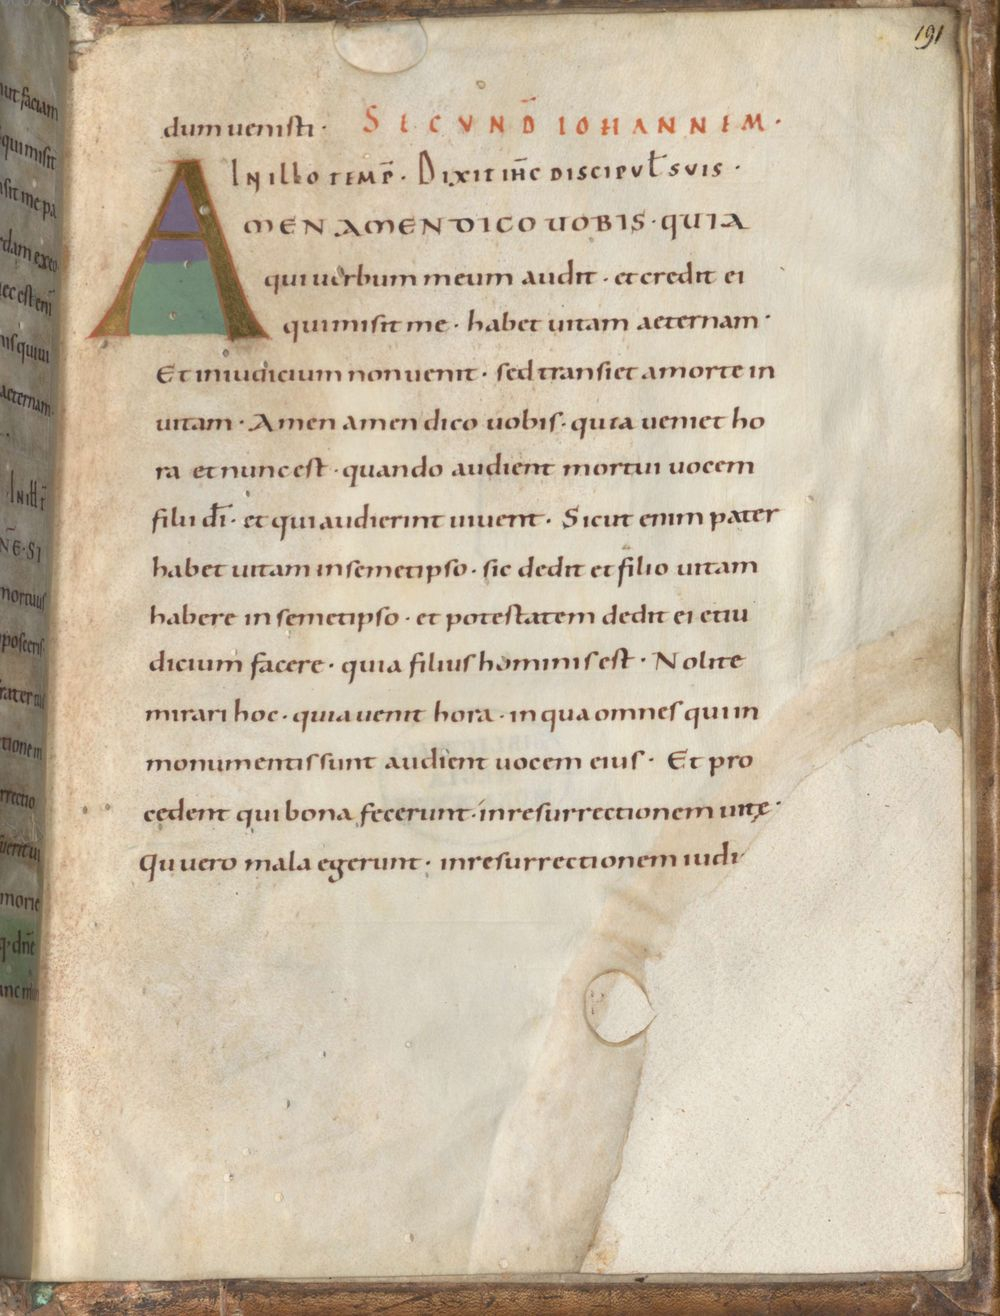 191
dum uenisti · SECUND̄ IOHANNEM ·
IN illo temp̄ · Dixit ih̄c discipul̄ suis ·
AMEN AMEN DICO UOBIS · QUIA
qui uerbum meum audit · et credit ei
qui misit me · habet uitam aeternam ·
Et in iudicium non uenit · sed transiet a morte in
uitam · Amen amen dico uobis · quia ueniet ho
ra et nunc est · quando audient mortui uocem
filii d̄i · et qui audierint uiuent · Sicut enim pater
habet uitam in semetipso · sic dedit et filio uitam
habere in semetipso · et potestatem dedit ei et iu
dicium facere · quia filius hominis est · Nolite
mirari hoc · quia uenit hora · in qua omnes qui in
monumentis sunt audient uocem eius · Et pro
cedent qui bona fecerunt · in resurrectionem uitę ·
Qui uero mala egerunt · in resurrectionem iudi